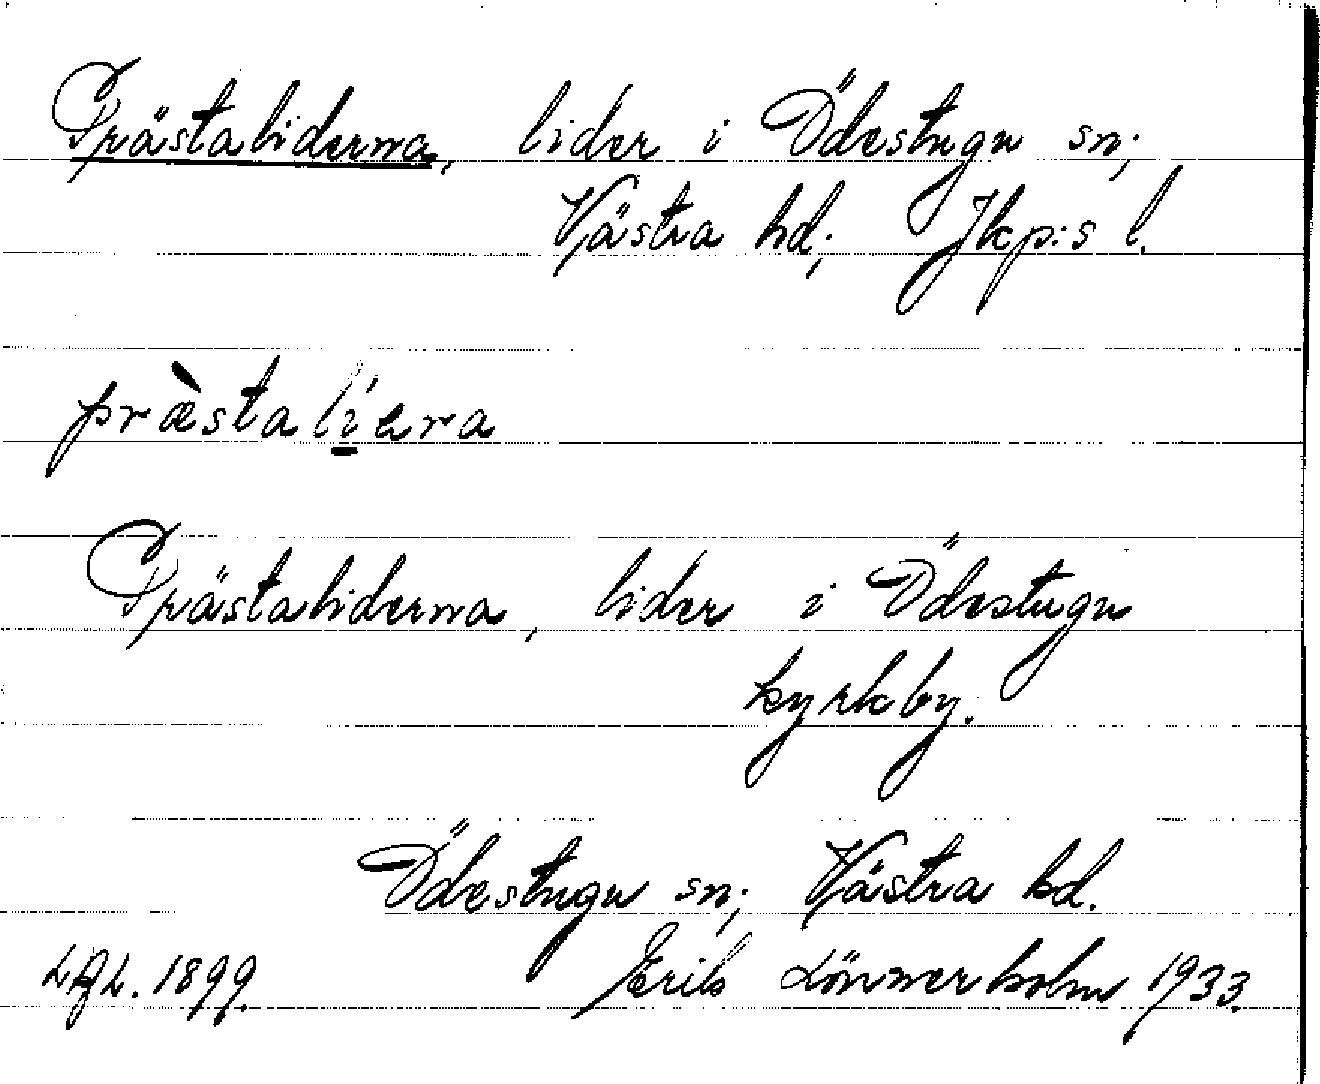 Prästaliderna, lider i Ödestugu sn;
Västra hd; Jkp:s l.
præ̀stali̠æra
Prästaliderna, lider i Ödestugu
kyrkby.
Ödestugu sn; Västra hd.
1899. Erik Lönnerholm 1933.